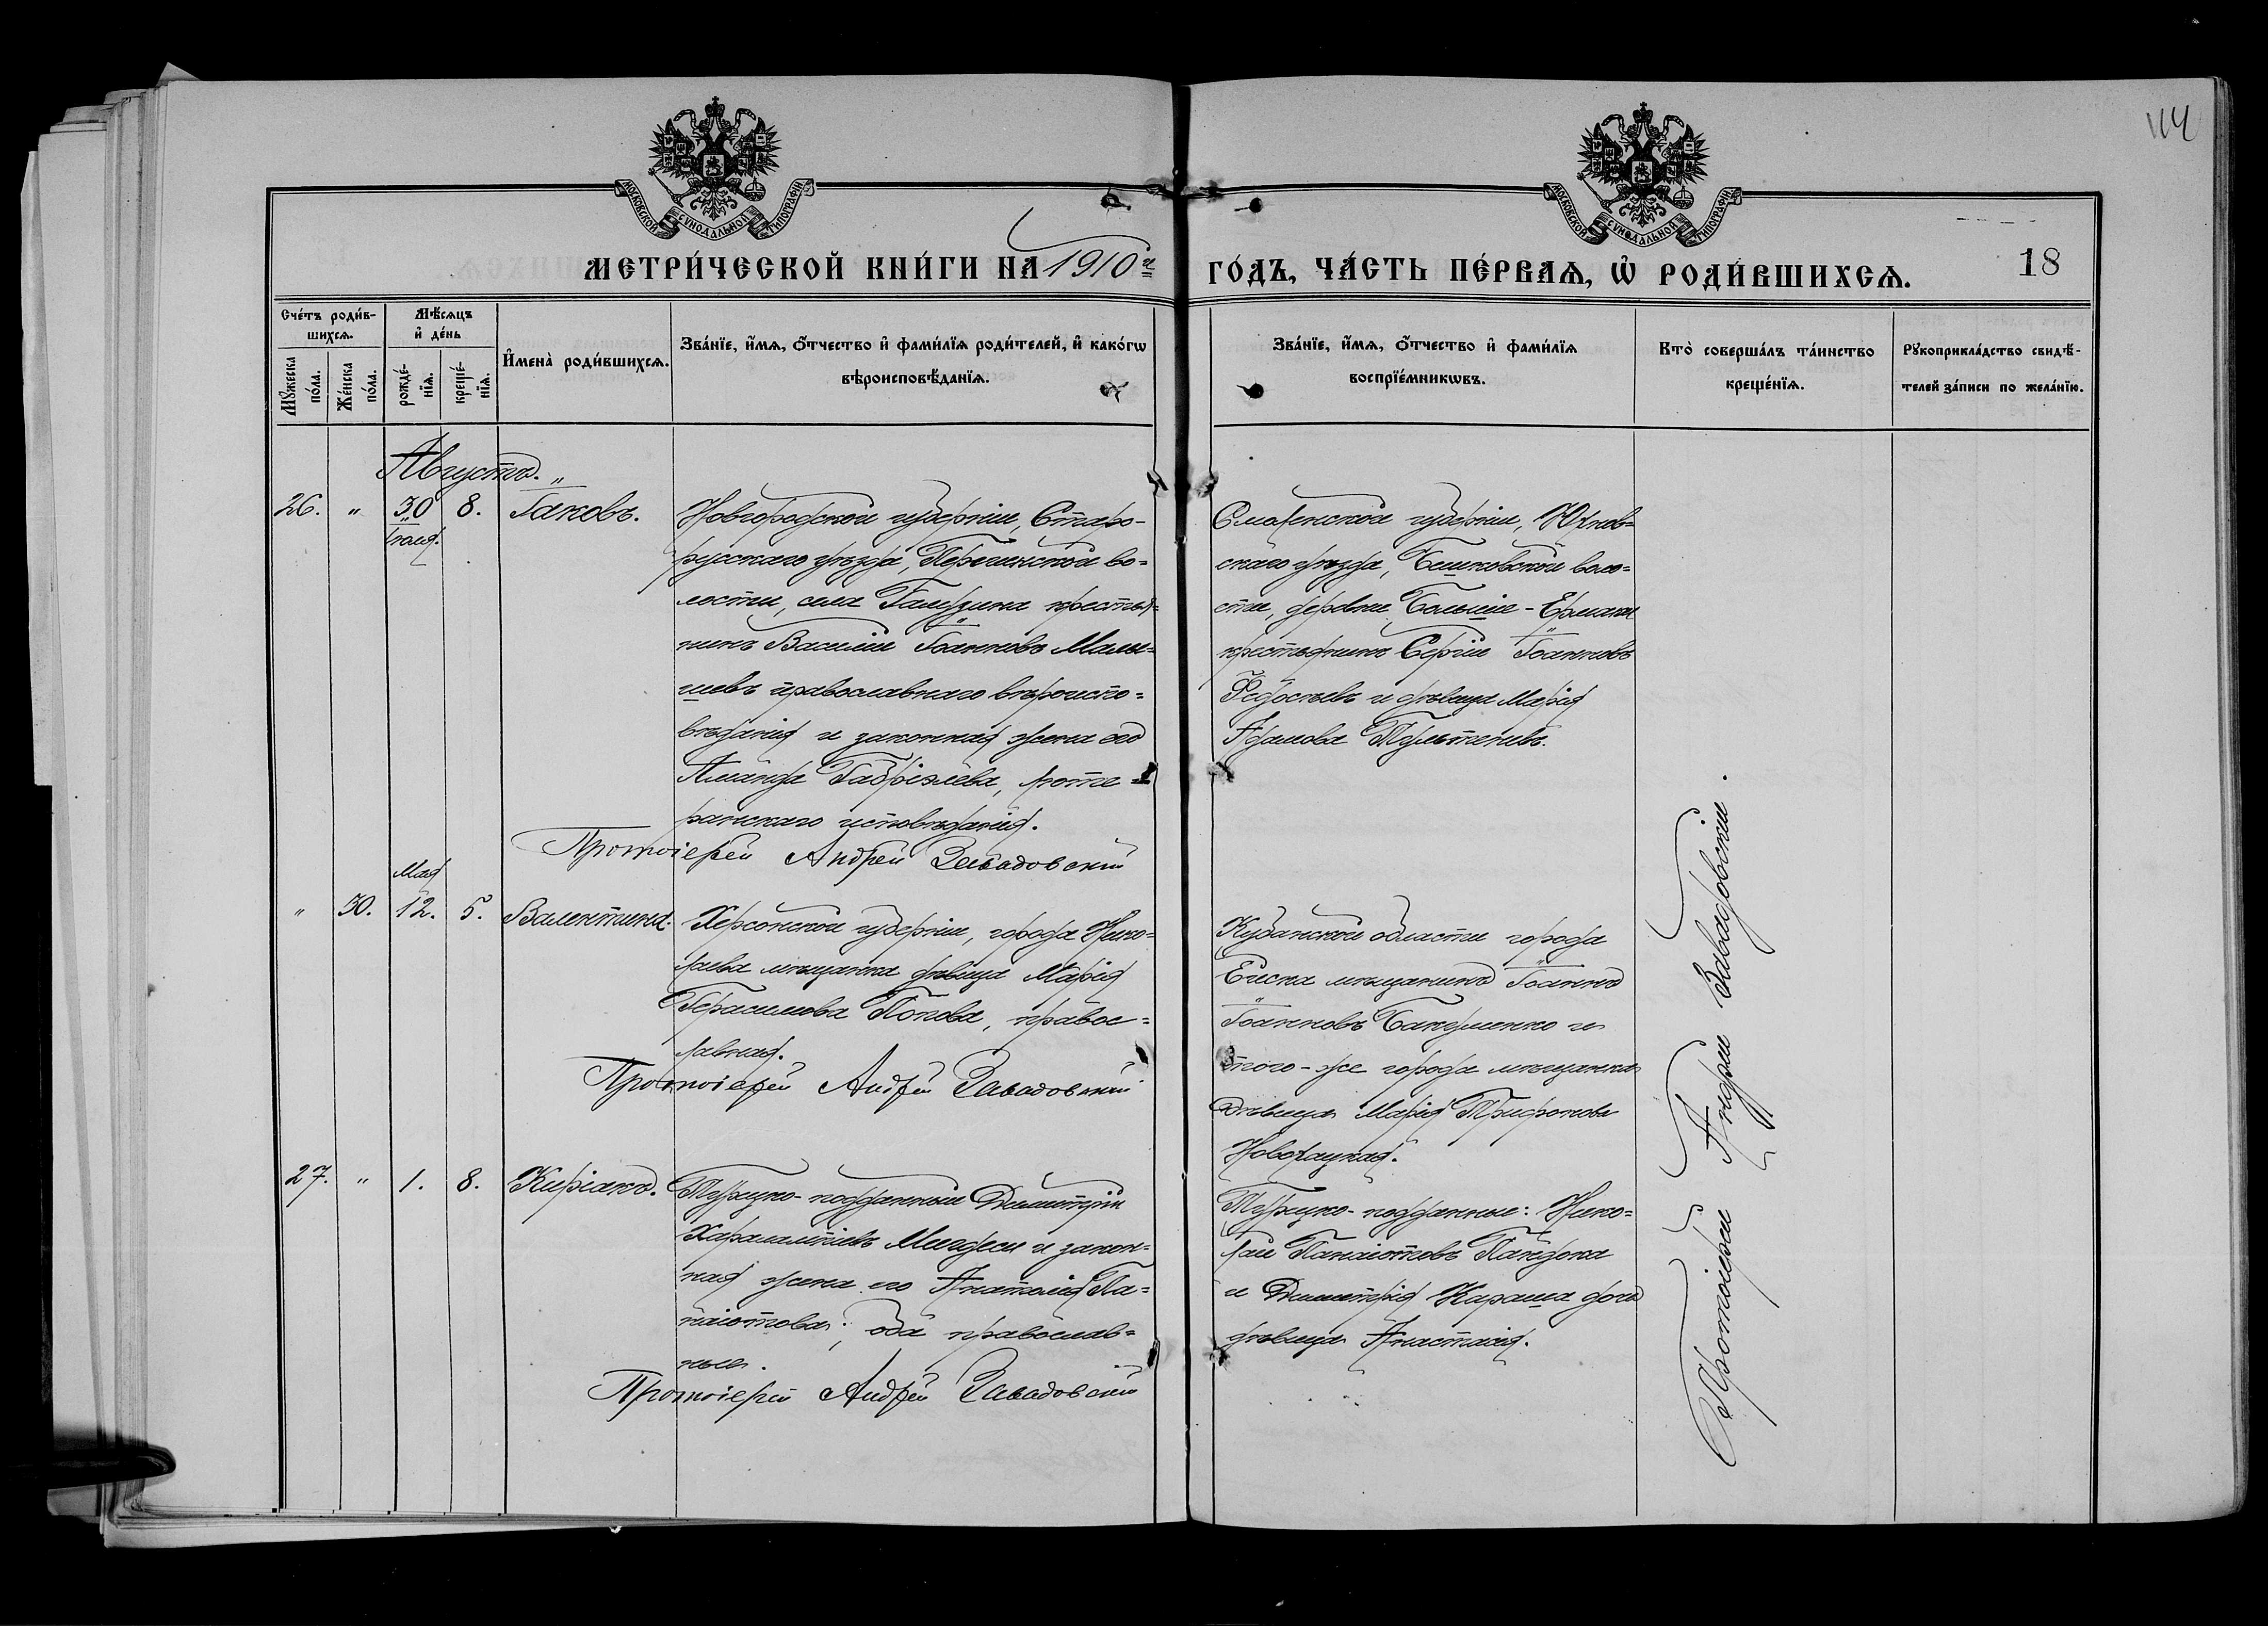 114
МОСКОВСКОЙ СУНОДАЛЬНОЙ ТИПОГРАФІИ
МОСКОВСКОЙ СУНОДАЛЬНОЙ ТИПОГРАФІИ
МЕТРИ́ЧЕСКОЙ КНИ́ГИ НА 1910й ГО́ДЪ, ЧА́СТЬ ПЕ́РВАѦ, Ѡ҆ РОДИ́ВШИХСѦ.
18
Сче́тъ роди́в-
шихсѧ.
Мꙋ́жеска
по́ла.
Же́нска
по́ла.
Мѣ́сѧцъ
и҆ де́нь
рожде́-
нїѧ.
креще́-
нїѧ.
И҆мена̀ роди́вшихсѧ.
Зва́нїе, и҆́мѧ, ѻ҆́тчество и҆ фами́лїѧ роди́телей, и҆ како́гѡ
вѣроисповѣ́данїѧ.
Зва́нїе, и҆́мѧ, ѻ҆́тчество и҆ фами́лїѧ
воспрїе́мникѡвъ.
Кто̀ соверша́лъ та́инство
креще́нїѧ.
Рꙋкоприкла́дство свидѣ́-
телей за́писи по жела́нїю.
Августъ.
26. " 30 8. Іаковъ.
мая.
Новгородской губерніи, Старо-
русскаго уѣзда, во-
лости, села крестья-
нинъ Василій Іоанновъ Малы-
шевъ православнаго вѣроиспо-
вѣданія и законная жена его
Аманда Габріэлева, люте-
ранскаго исповѣданія.
Протоіерей Андрей Завадовскій
Смоленской губерніи, Юхнов-
скаго уѣзда, воло-
сти, деревни
крестьянинъ Сергій Іоанновъ
Федосѣевъ и дѣвица Марія
Адамова
Мая
" 30. 12. 5. Валентина.
Херсонской губерніи, города Нико-
лаева мѣщанка дѣвица Марія
Герасимова Попова, правос-
лавная.
Протоіерей Андрей Завадовскій
Кубанской области города
Ейска мѣщанинъ Іоаннъ
Іоанновъ и
того-же города мѣщанка
дѣвица Марія Трифонова
27. " 1. 8. Киріакъ.
Турецко-подданный Димитрій
Харалампіевъ и закон-
ная жена его Анатолія Па-
наіотова; оба православ-
ные.
Протоіерей Андрей Завадовскій
Турецко-подданные: Нико-
лай Панаіотовъ
и Димитрія дочь
дѣвица Анастасія.
Протоіерей Андрей Завадовскій.